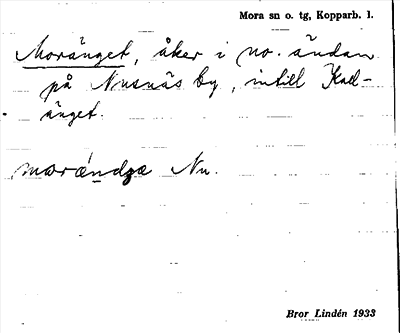 Mora sn o. tg, Kopparb. l.
Moränget, åker i no. ändan
på Nusnäs by, intill Kall-
änget.
moréndgæ Nu.
Bror Lindén 1933